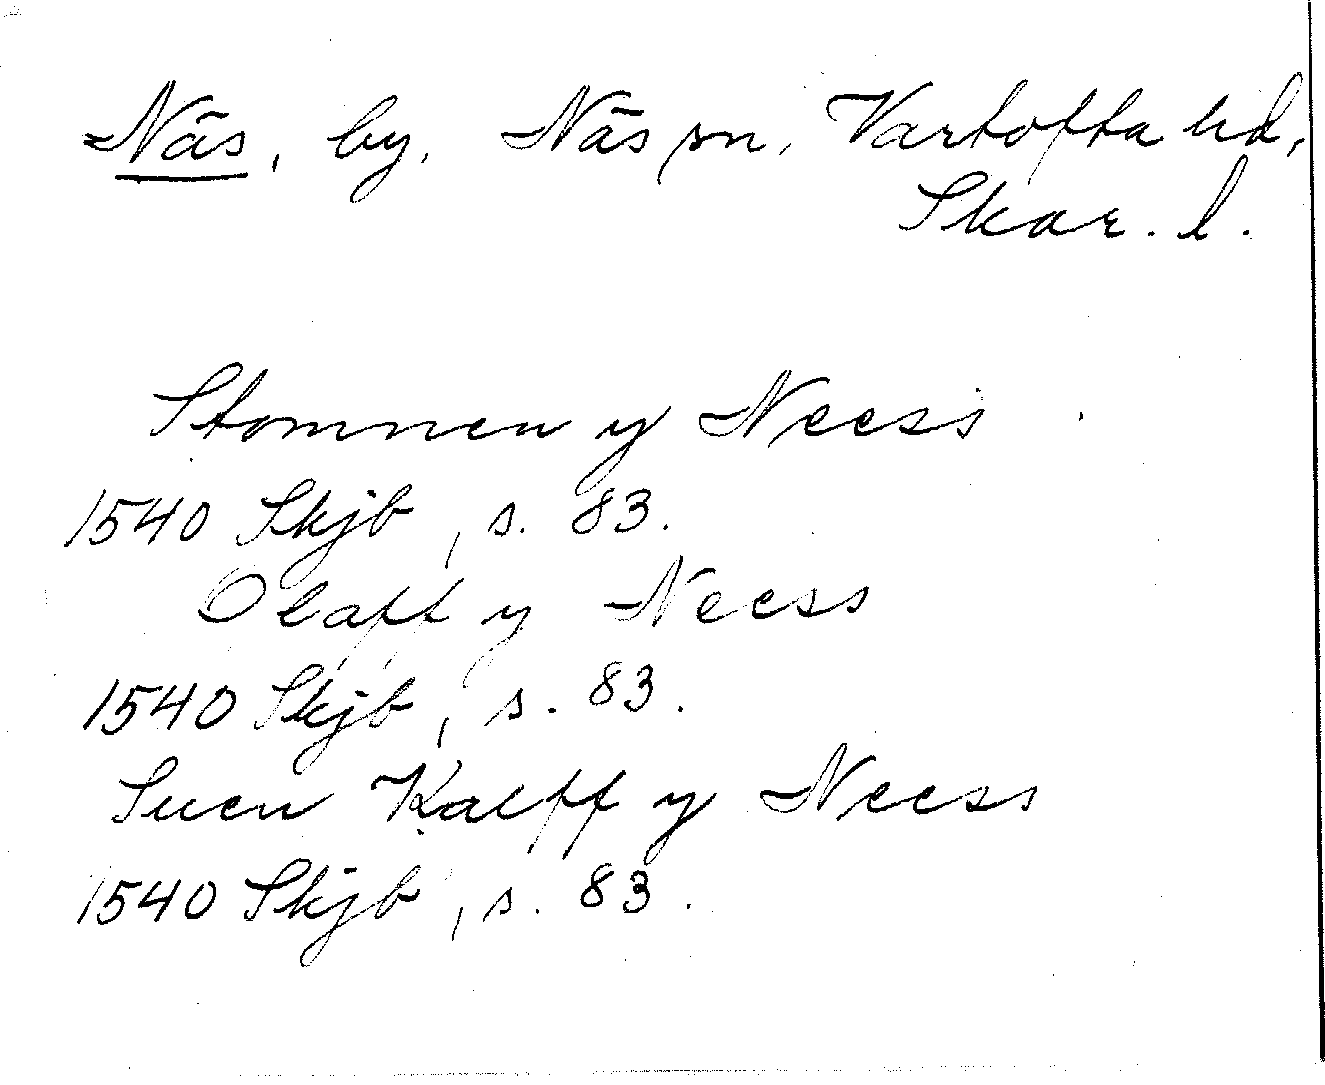 Näs, by, Näs sn, Vartofta hd,
Skar. l.
Stomnen y Neess
1540 Skjb, s. 83.
Olaff y Neess
1540 Skjb, s. 83.
Suen Kalff y Neess
1540 Skjb, s. 83.